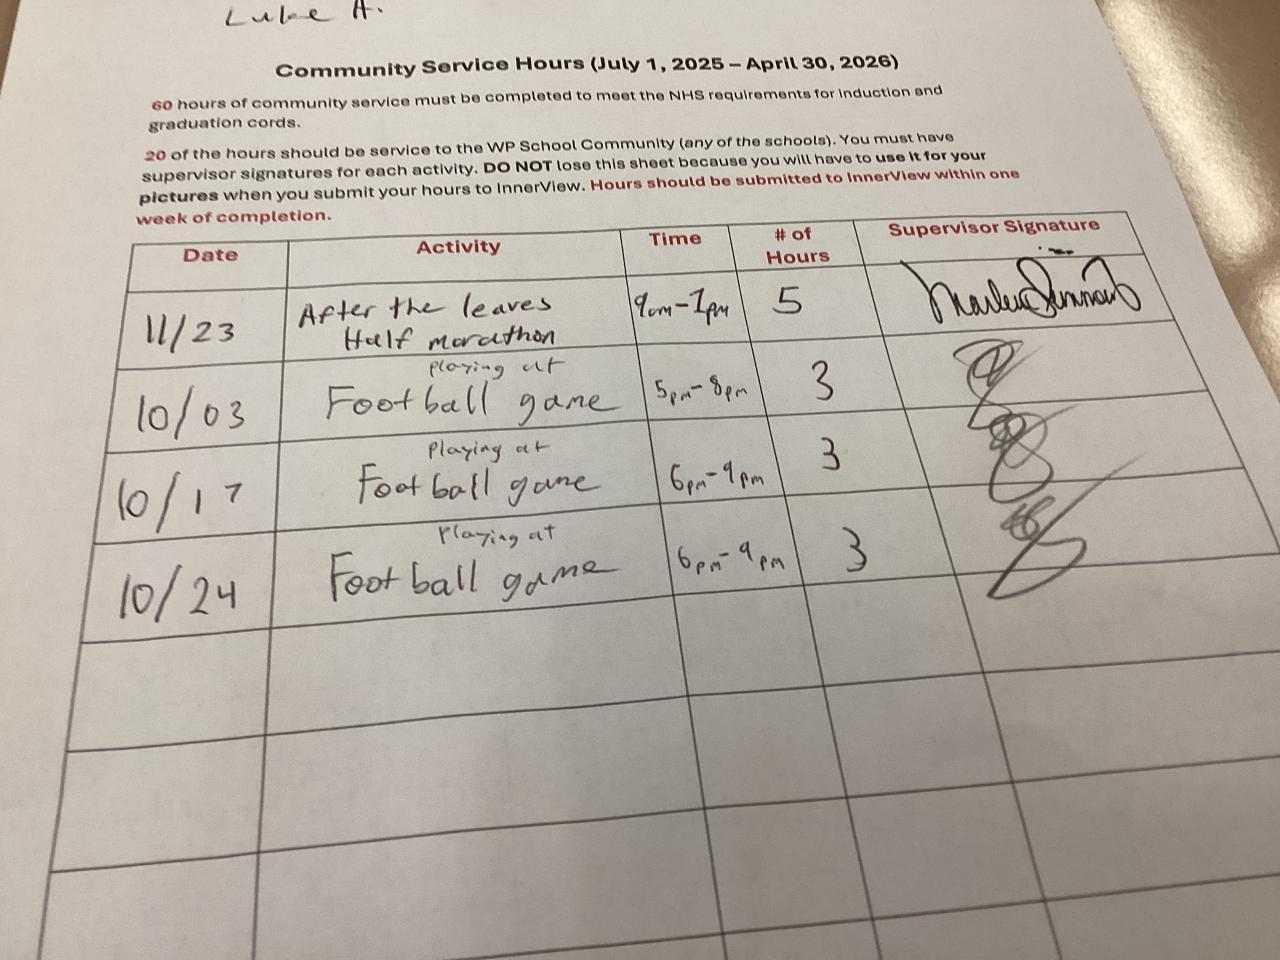 Luke A.
Community Service Hours (July 1, 2025 – April 30, 2026)
60 hours of community service must be completed to meet the NHS requirements for induction and
graduation cords.
20 of the hours should be service to the WP School Community (any of the schools). You must have
supervisor signatures for each activity. DO NOT lose this sheet because you will have to use it for your
pictures when you submit your hours to InnerView. Hours should be submitted to InnerView within one
week of completion.
Date Activity Time # of Hours Supervisor Signature
11/23 After the leaves Half marathon 9am-1pm 5
10/03 playing at Football game 5pm-8pm 3
10/17 Playing at Football game 6pm-9pm 3
10/24 Playing at Football game 6pm-9pm 3